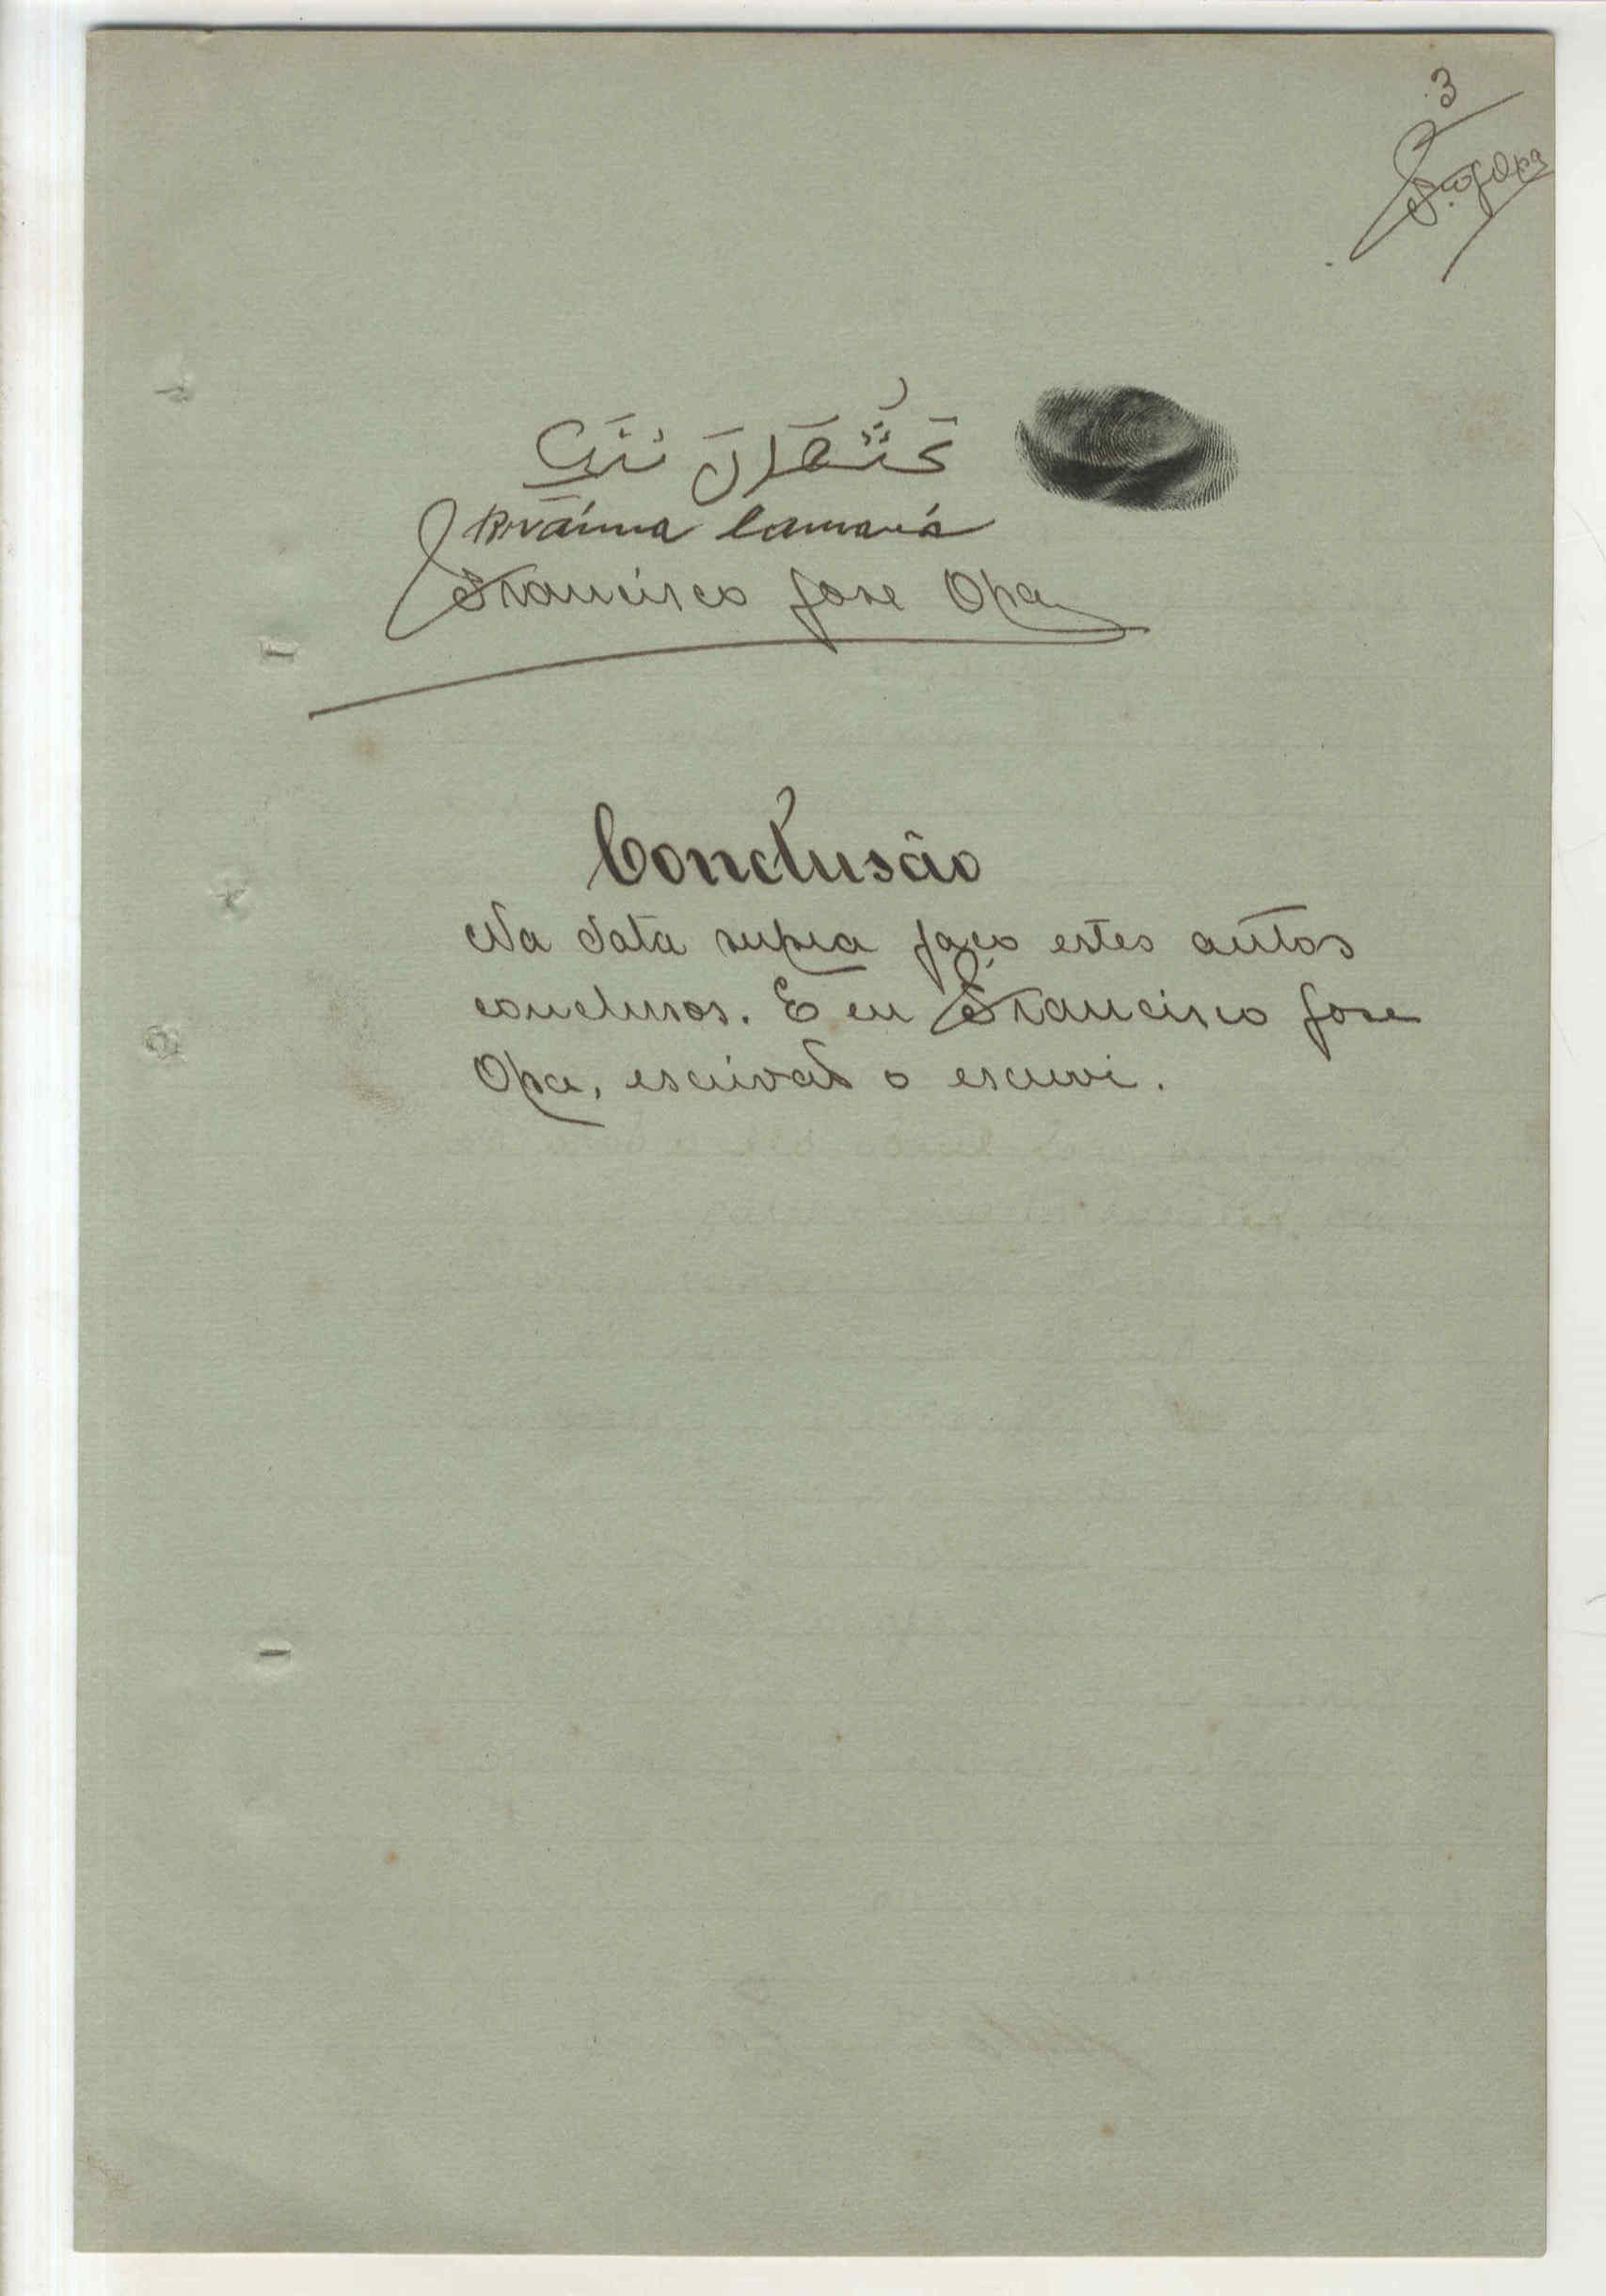 3
Francisco Jose Opa
Conclusão
Na data supra faço estes autos
conclusos. E eu Francisco Jose
Opa, escrivão o escrevi.